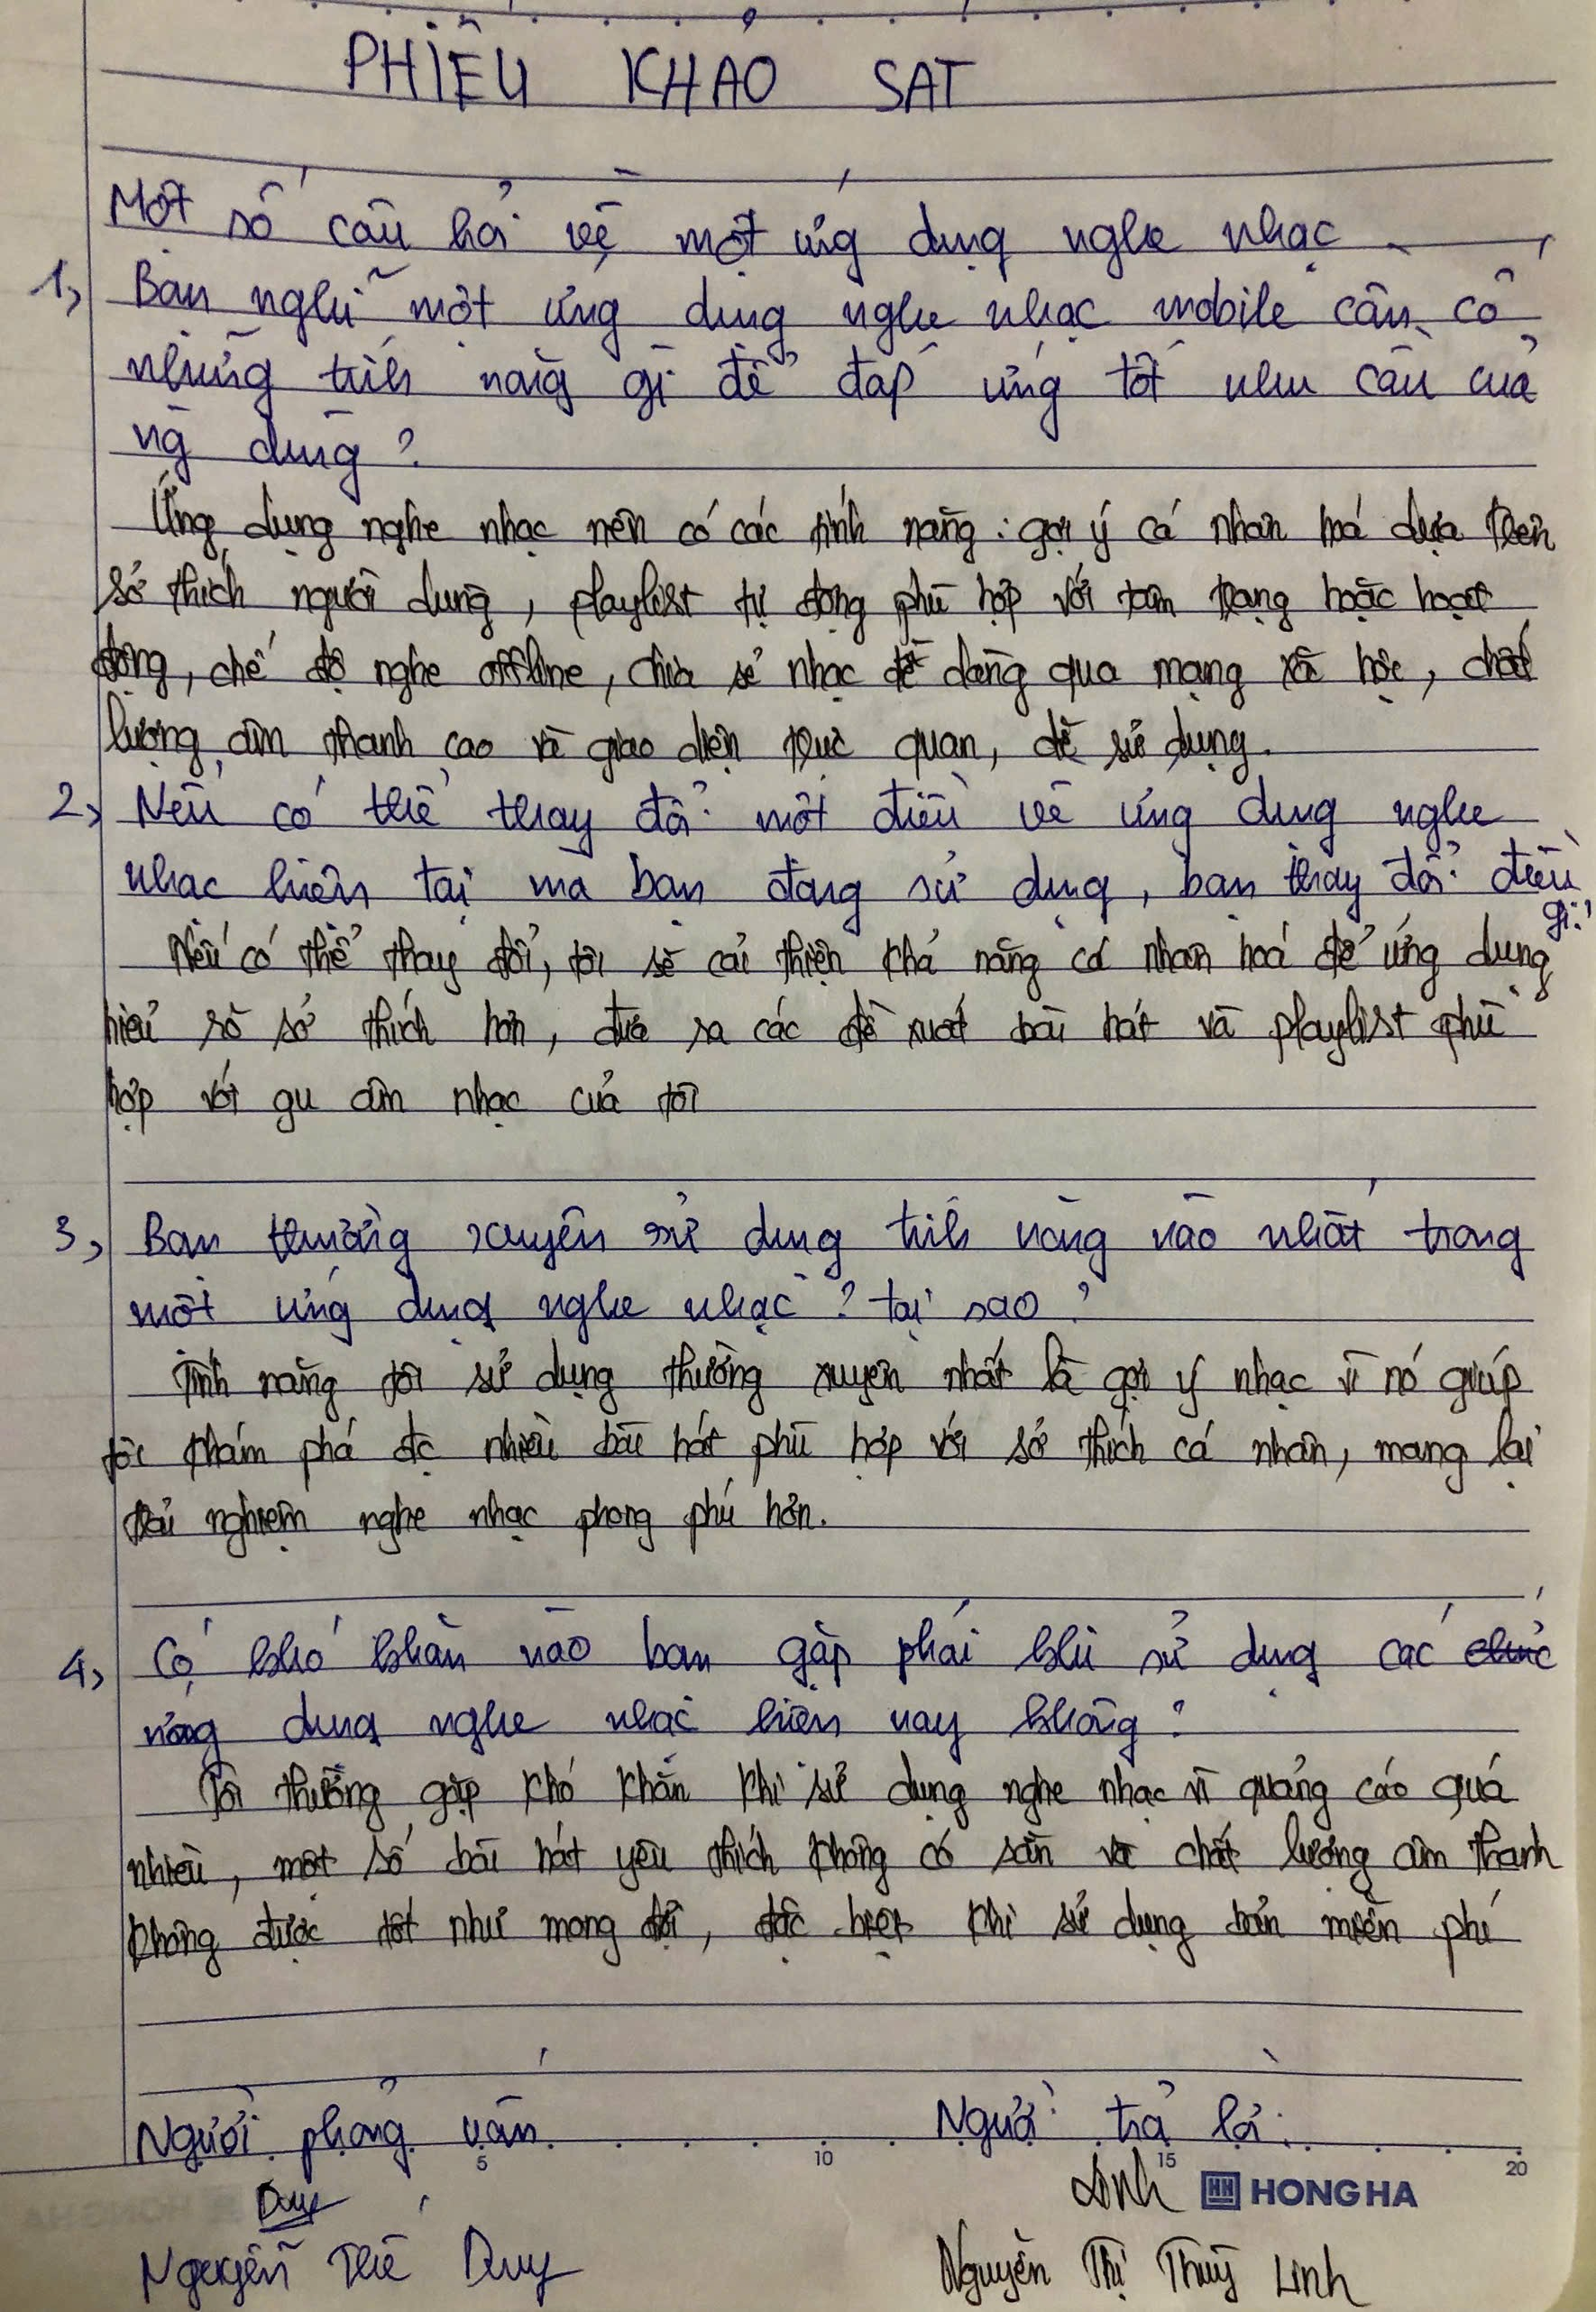 PHIẾU KHẢO SÁT
Một số câu hỏi về một ứng dụng nghe nhạc
1, Bạn nghĩ một ứng dụng nghe nhạc mobile cần có
những tính năng gì để đáp ứng tốt nhu cầu của
ng dùng ?
Ứng dụng nghe nhạc nên có các tính năng : gợi ý cá nhân hoá dựa trên
sở thích người dùng, playlist tự động phù hợp với tâm trạng hoặc hoạt
động, chế độ nghe offline, chia sẻ nhạc dễ dàng qua mạng xã hội, chất
lượng âm thanh cao và giao diện trực quan, dễ sử dụng.
2, Nếu có thể thay đổi một điều về ứng dụng nghe
nhạc hiện tại mà bạn đang sử dụng, bạn thay đổi điều
gì ?
Nếu có thể thay đổi, tôi sẽ cải thiện khả năng cá nhân hoá để ứng dụng
hiểu rõ sở thích hơn, đưa ra các đề xuất bài hát và playlist phù
hợp với gu âm nhạc của tôi
3, Bạn thường xuyên sử dụng tính năng nào nhất trong
một ứng dụng nghe nhạc ? tại sao ?
Tính năng tôi sử dụng thường xuyên nhất là gợi ý nhạc vì nó giúp
tôi khám phá đc nhiều bài hát phù hợp với sở thích cá nhân, mang lại
trải nghiệm nghe nhạc phong phú hơn.
4, Có khó khăn nào bạn gặp phải khi sử dụng các chức
ứng dụng nghe nhạc hiện nay không ?
Tôi thường gặp khó khăn khi sử dụng nghe nhạc vì quảng cáo quá
nhiều, một số bài hát yêu thích không có sẵn và chất lượng âm thanh
không được tốt như mong đợi, đặc biệt khi sử dụng bản miễn phí
Người phỏng vấn
Người trả lời
5 10 15 20
Duy
Linh
HONG HA
Nguyễn Thế Duy
Nguyễn Thị Thuỳ Linh